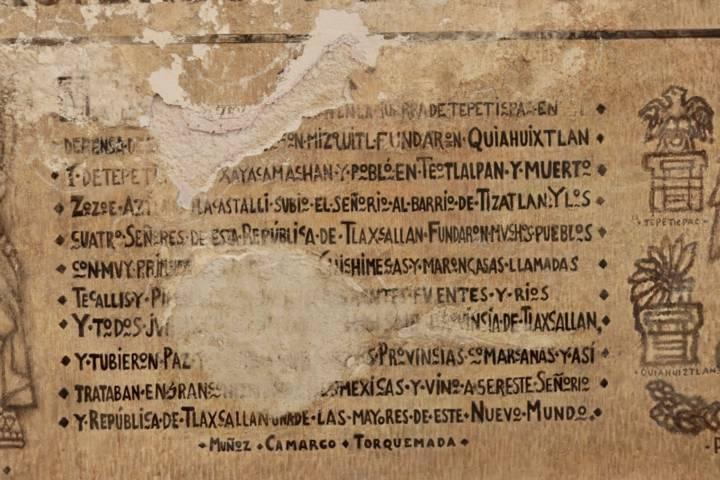 EN LA GUERRA DE TEPETISPAS EN
DEFENSA DE ON·MIZQUITL·FUNDARON·QUIAHUIXTLAN
Y·DETEPETI XAYACAMACHAN·Y·POBLÓ·EN·TEOTLALPAN·Y·MUERTO
TLACASTALLI·SUBIO·EL·SEÑORIO·AL·BARRIO·DE·TIZATLAN·Y LOS
CUATRO·SEÑORES·DE ESTA·REPÚBLICA·DE·TLAXCALLAN·FUNDARON·MVSHOS·PUEBLOS
CON·MVY CHISHIMECAS·Y·MARON·CASAS·LLAMADAS
TECALLIS·Y· FVENTES·Y·RIOS
Y·TODOS· PROVINCIA·DE·TLAXCALLAN,
Y·TUBIERON·PAZ S·PROVINCIAS·COMARSANAS·Y·ASÍ
TRATABAN·EN·GRAN MEXICAS·Y·VINO·A·SER ESTE·SEÑORIO
Y·REPÚBLICA·DE·TLAXCALLAN UNA·DE·LAS·MAYORES·DE·ESTE·NUEVO·MUNDO.
·MUÑOZ·CAMARGO·TORQUEMADA·
·TEPETICPAC·
·QUIAHUIZTLAN